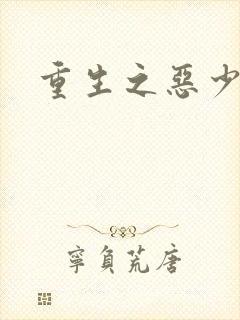 重生之惡少
寧負荒唐